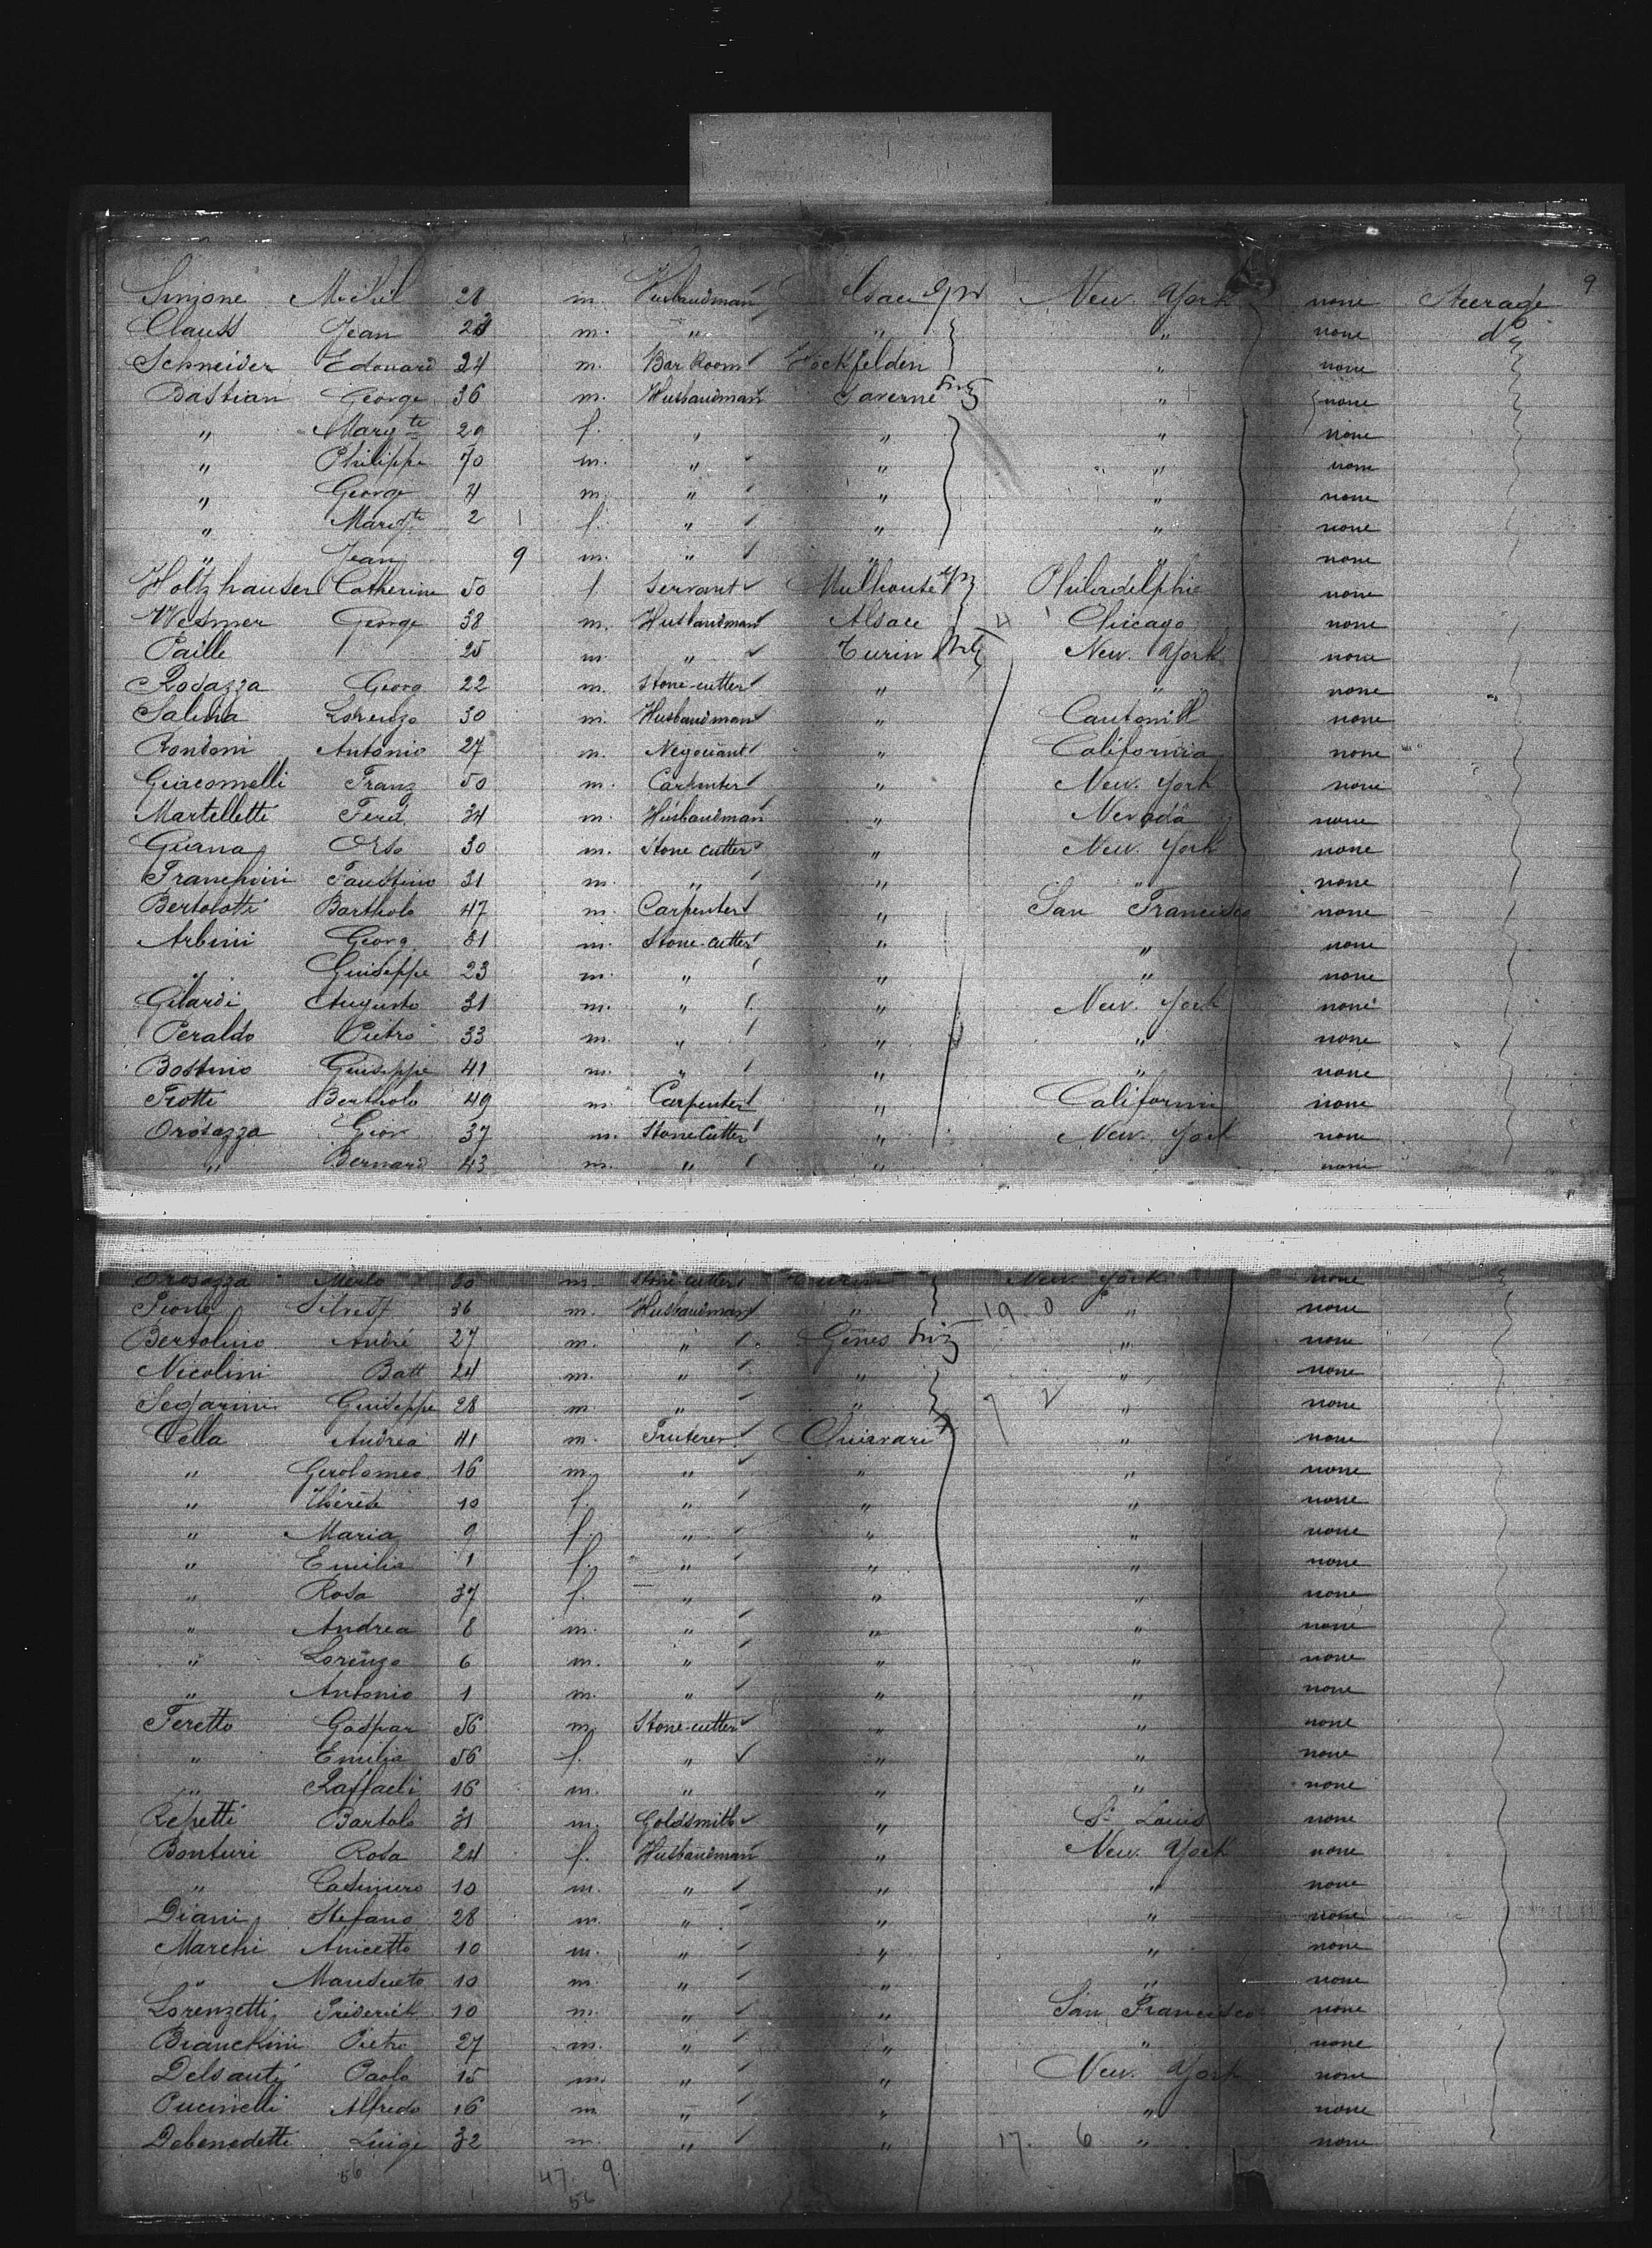 9
Simone Michel 28 m. Husbandman Alsace New York none Steerage
Clauss Jean m. " " " none do
Schneider Edouard 24 m. Bar Room Hockfelden " none
Bastian George 36 m. Husbandman Saverne " none
" Margte 29 f. " " " none
" Philippe 70 m. " " " none
" George 4 m. " " " none
" Margte 2 f. " " " none
" Jean 9 m. " " " none
Holtzhauser Catherine 50 f Servant Mulhouse Philadelphie none
Wesmer George 38 m. Husbandman Alsace 4 1 Chicago none
Paille 25 m. " Turin New York none
Rosazza Georg 22 m. Stone-cutter " " none
Salina Lorenzo 30 m. Husbandman " none
Rondoni Antonio 27 m. Negociant " California none
Giacomelli Franz 50 m. Carpenter " New York none
Martelletti Ferd. 34 m. Husbandman " Nevada none
Guana Orso 30 m. Stone cutter " New York none
Franchini Faustino 31 m. " " " none
Bertolotti Bartholo 47 m. Carpenter " San Francisco none
Arbini Georg 31 m. Stone-cutter " " none
" Guiseppe 23 m. " " " none
Gilardi Augusto 31 m. " " New York none
Peraldo Pietro 33 m. " " " none
Bostino Guiseppe 41 m. " " " none
Trotti Bertholo 49 m Carpenter " Californi none
Orosazza Geor 37 m. Stone Cutter " New York none
" Bernard 43 m. " " none
Orosazza Merlo 30 m. Stone cutter Turin New York none
Pione Silvest 36 m. Husbandman " 19 0 " none
Bertolino André 27 m. " Gênes " none
Nicolini Batt 24 m. " " " none
Segarini Guiseppe 28 m " " 7 2 " none
Cella Andrea 41 m. Fruterer Chiavari " none
" Gerolomeo 16 m. " " " none
" Thérèse 10 f. " " " none
" Maria 9 f. " " " none
" Emilia 1 f. " " " none
" Rosa 37 f. " " " none
" Andrea 8 m. " " " none
" Lorenzo 6 m. " " " none
" Antonio 1 m. " " " none
Feretto Gaspar 56 m. Stone-cutter " " none
" Emilia 56 f. " " " none
" Raffaeli 16 m. " " " none
Repetti Bartolo 31 m. Goldsmith " St Louis none
Bonturi Rosa 24 f. Husbandman " New York none
" Casimiero 10 m. " " " none
Diani Stefano 28 m. " " " none
Marchi Anicetto 10 m. " " " none
" Mansueto 10 m. " " " none
Lorenzetti Friderick 10 m. " " San Francisco none
Bianchini Pietro 27 m. " " " none
Delsanti Paolo 15 m. " " New York none
Pucinelli Alfredo 16 m " " " none
Debenedetti Luigi 32 m. " " 17. 6 " none
56 47 9
56